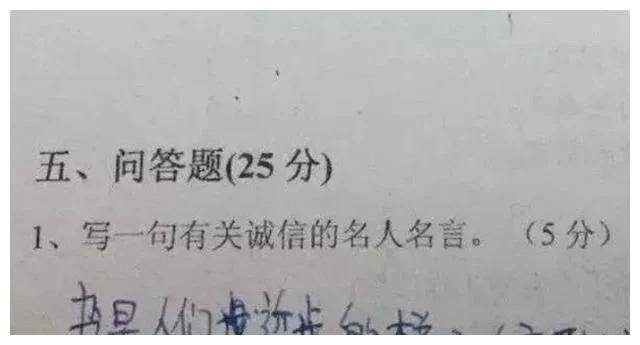 五、问答题(25 分)
1、写一句有关诚信的名人名言。（5 分）
书是人们进步的